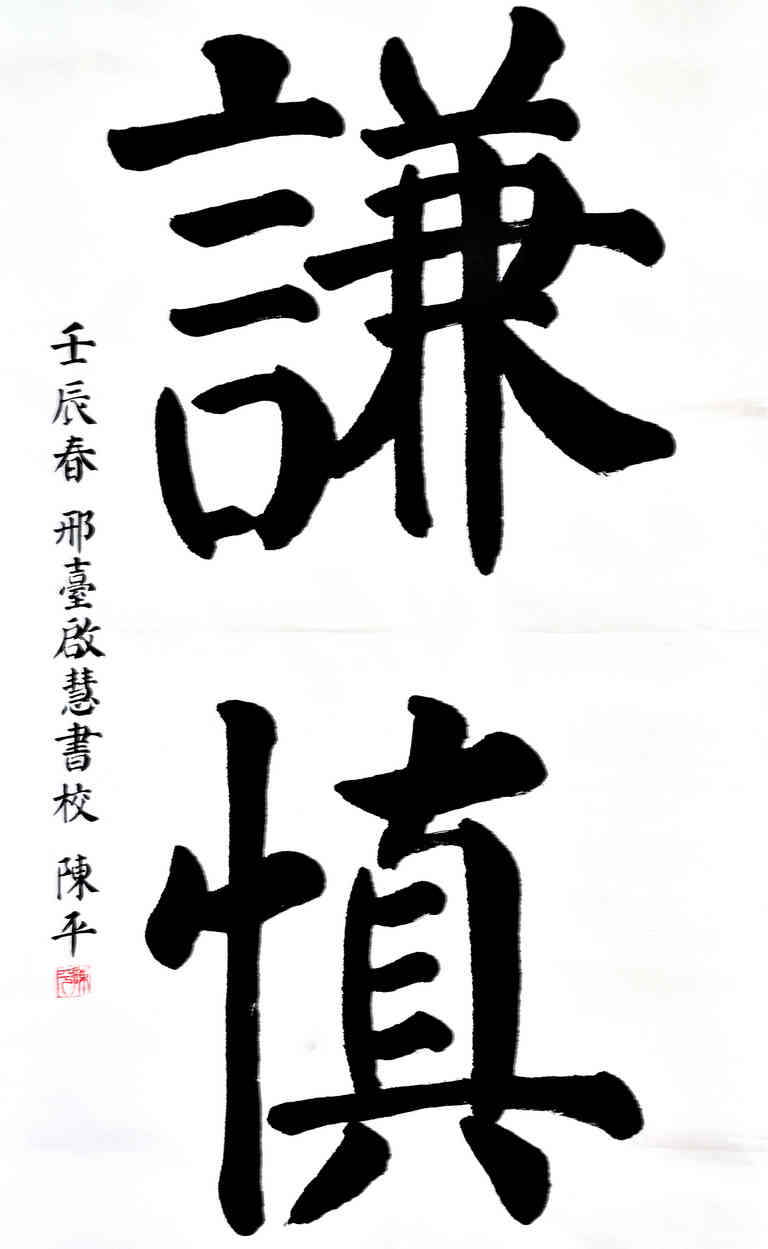 謙慎
壬辰春 邢臺啟慧書校 陳平